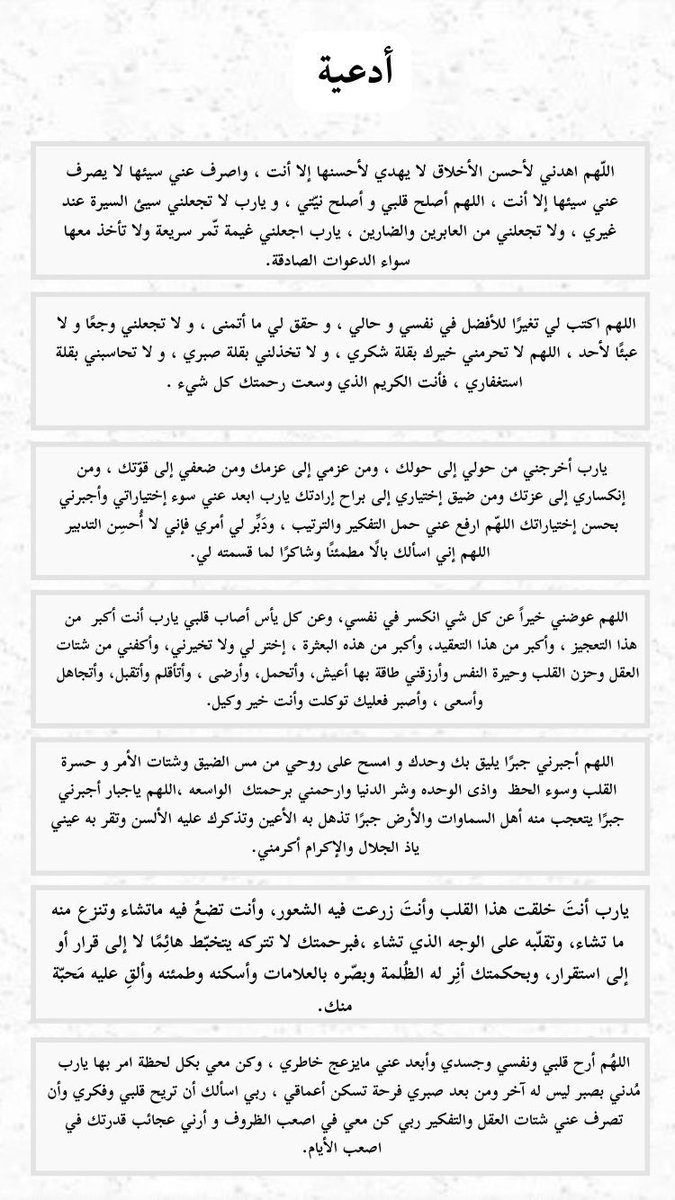 أدعية
اللّهم اهدني لأحسن الأخلاق لا يهدي لأحسنها إلا أنت ، واصرف عني سيئها لا يصرف
عني سيئها إلا أنت ، اللهم أصلح قلبي و أصلح نيّتي ، و يارب لا تجعلني سيئ السيرة عند
غيري ، ولا تجعلني من العابرين والضارين ، يارب اجعلني غيمة تّمر سريعة ولا تأخذ معها
سواء الدعوات الصادقة.
اللهم اكتب لي تغيرًا للأفضل في نفسي و حالي ، و حقق لي ما أتمنى ، و لا تجعلني وجعًا و لا
عبئًا لأحد ، اللهم لا تحرمني خيرك بقلة شكري ، و لا تخذلني بقلة صبري ، و لا تحاسبني بقلة
استغفاري ، فأنت الكريم الذي وسعت رحمتك كل شيء .
يارب أخرجني من حولي إلى حولك ، ومن عزمي إلى عزمك ومن ضعفي إلى قوّتك ، ومن
إنكساري إلى عزتك ومن ضيق إختياري إلى براح إرادتك يارب ابعد عني سوء إختياراتي وأجبرني
بحسن إختياراتك اللهّم ارفع عني حمل التفكير والترتيب ، ودَبِّر لي أمري فإني لا أُحسِن التدبير
اللهم إني اسألك بالًا مطمئنًا وشاكرًا لما قسمته لي.
اللهم عوضني خيراً عن كل شي انكسر في نفسي، وعن كل يأس أصاب قلبي يارب أنت أكبر من
هذا التعجيز ، وأكبر من هذا التعقيد، وأكبر من هذه البعثرة ، إختر لي ولا تخيرني، وأكفني من شتات
العقل وحزن القلب وحيرة النفس وأرزقني طاقة بها أعيش، وأتحمل، وأرضى ، وأتأقلم وأتقبل، وأتجاهل
وأسعى ، وأصبر فعليك توكلت وأنت خير وكيل.
اللهم أجبرني جبرًا يليق بك وحدك و امسح على روحي من مس الضيق وشتات الأمر و حسرة
القلب وسوء الحظ واذى الوحده وشر الدنيا وارحمني برحمتك الواسعه ،اللهم ياجبار أجبرني
جبرًا يتعجب منه أهل السماوات والأرض جبرًا تذهل به الأعين وتذكرك عليه الألسن وتقر به عيني
ياذ الجلال والإكرام أكرمني.
يارب أنتَ خلقت هذا القلب وأنتَ زرعت فيه الشعور، وأنت تضعُ فيه ماتشاء وتنزع منه
ما تشاء، وتقلّبه على الوجه الذي تشاء ،فبرحمتك لا تتركه يتخبّط هائِمًا لا إلى قرار أو
إلى استقرار، وبحكمتك أنِر له الظُلمة وبصّره بالعلامات وأسكنه وطمئنه وألقِ عليه مَحبّة
منك.
اللهُم أرح قلبي ونفسي وجسدي وأبعد عني مايزعج خاطري ، وكن معي بكل لحظة امر بها يارب
مُدني بصبر ليس له آخر ومن بعد صبري فرحة تسكن أعماقي ، ربي اسألك أن تريح قلبي وفكري وأن
تصرف عني شتات العقل والتفكير ربي كن معي في اصعب الظروف و أرني عجائب قدرتك في
اصعب الأيام.